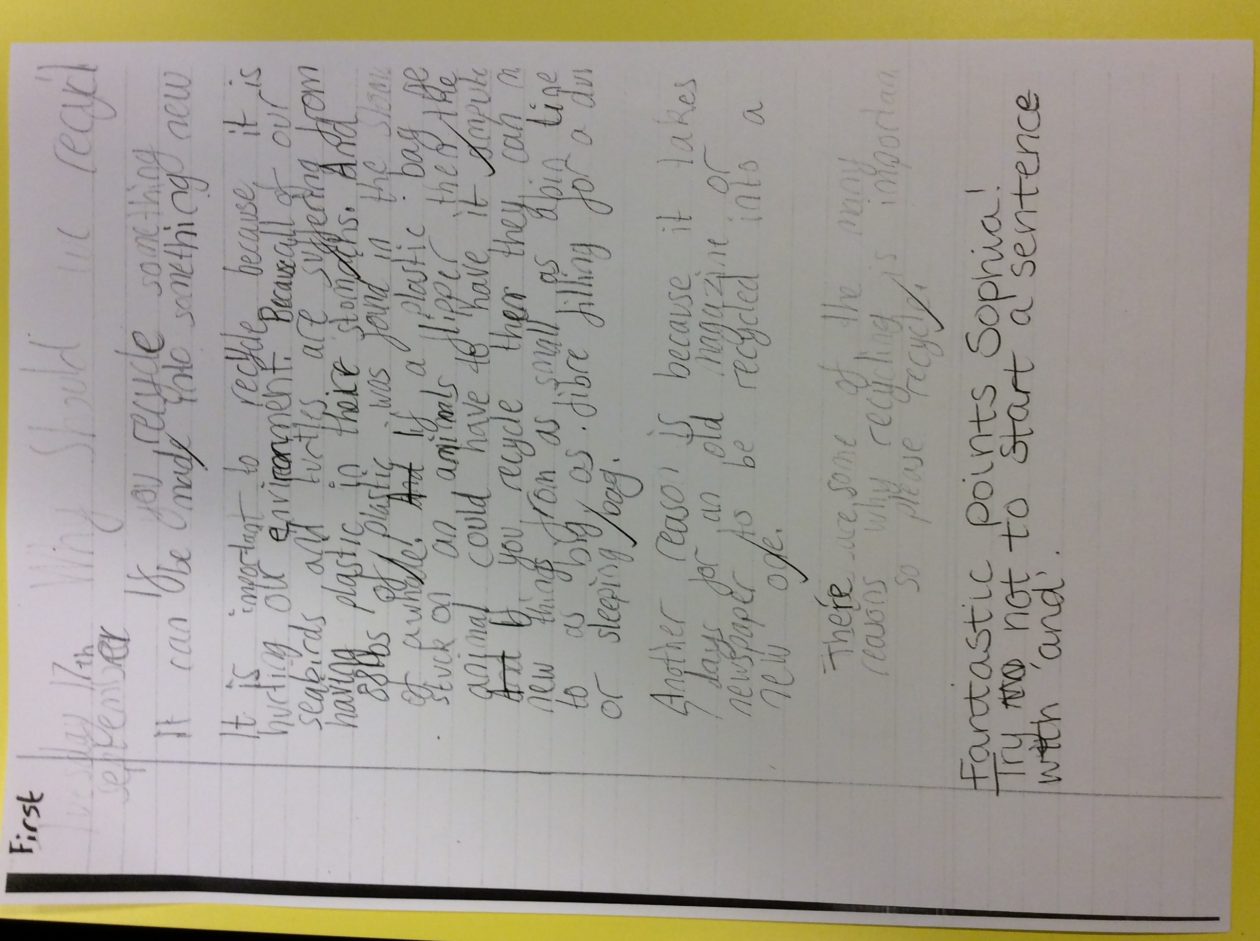 First
Tuesday 17th Why Should we recycl
september
If you recycle something
It can be made into something new
It is important to recycle because it is
hurting our environment. Because all of our
seabirds and turtles are suffering from
having plastic in theire stomachs. And
88lbs of plastic was found in the stom
of a whale. And If a plastic bag
stuck on an animals flipper then the
animal could have to have it
And If you recycle then they can
new things from as small as a
to as big as. fibre filling for a
or sleeping bag.
Another reason is because it takes
days for an old magazine or
newspaper to be recycled into a
new oge.
There are some of the many
reasons why recycling is importan
so please recycle.
Fantastic points Sophia!
Try not to start a sentence
with 'and'.